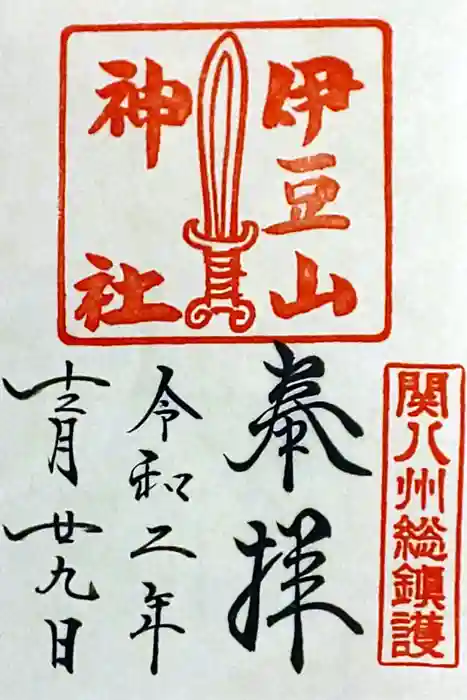 伊豆山
神社
関八州総鎮護
奉拝
令和二年
十二月廿九日